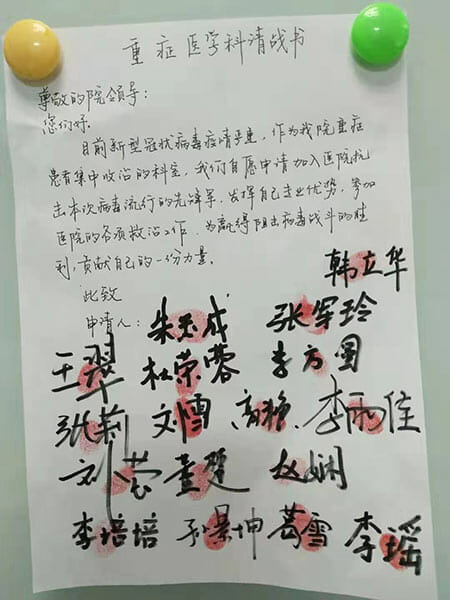 重症医学科请战书
尊敬的院领导：
您们好.
目前新型冠状病毒疫情严重，作为我院重症
患者集中收治的科室，我们自愿申请加入医院抗
击本次病毒流行的先锋军，发挥自己专业优势，参加
医院的各项救治工作，为赢得阻击病毒战斗的胜
利，贡献自己的一份力量。
韩立华
此致
申请人：朱 成 张军玲
王翠 杜荣蓉 李方圆
张莉 刘雪 高艳 李雨佳
刘芸 董楚 赵娴
李培培 孙景坤 葛雪 李瑶